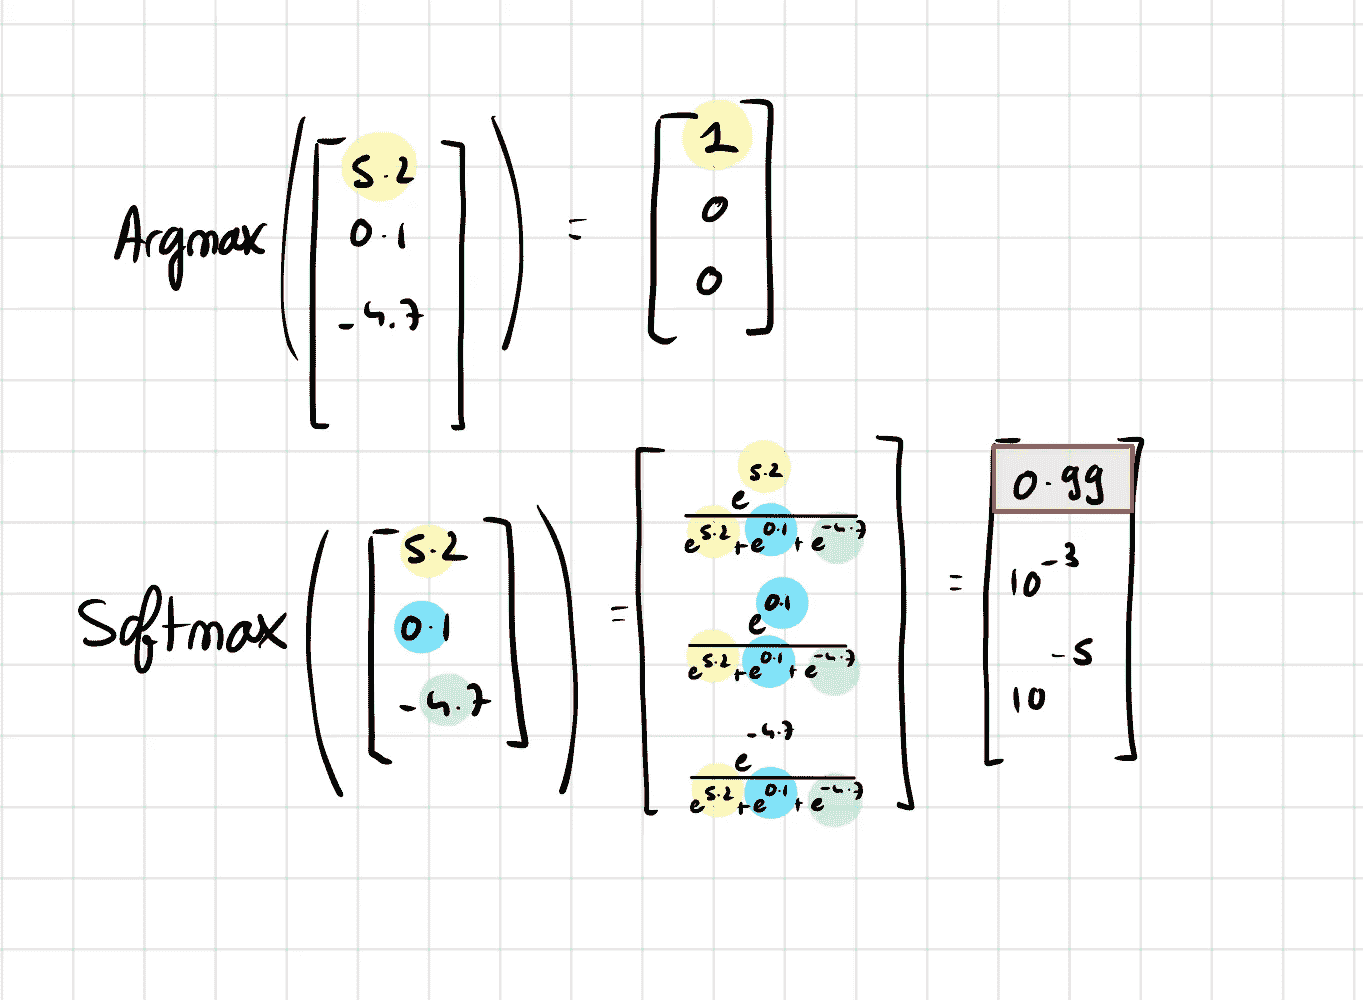 Argmax ( [ 5.2 0.1 -4.7 ] ) = [ 1 0 0 ]
Softmax ( [ 5.2 0.1 -4.7 ] ) = [ e^5.2 / (e^5.2 + e^0.1 + e^-4.7) e^0.1 / (e^5.2 + e^0.1 + e^-4.7) e^-4.7 / (e^5.2 + e^0.1 + e^-4.7) ] = [ 0.99 10^-3 10^-5 ]